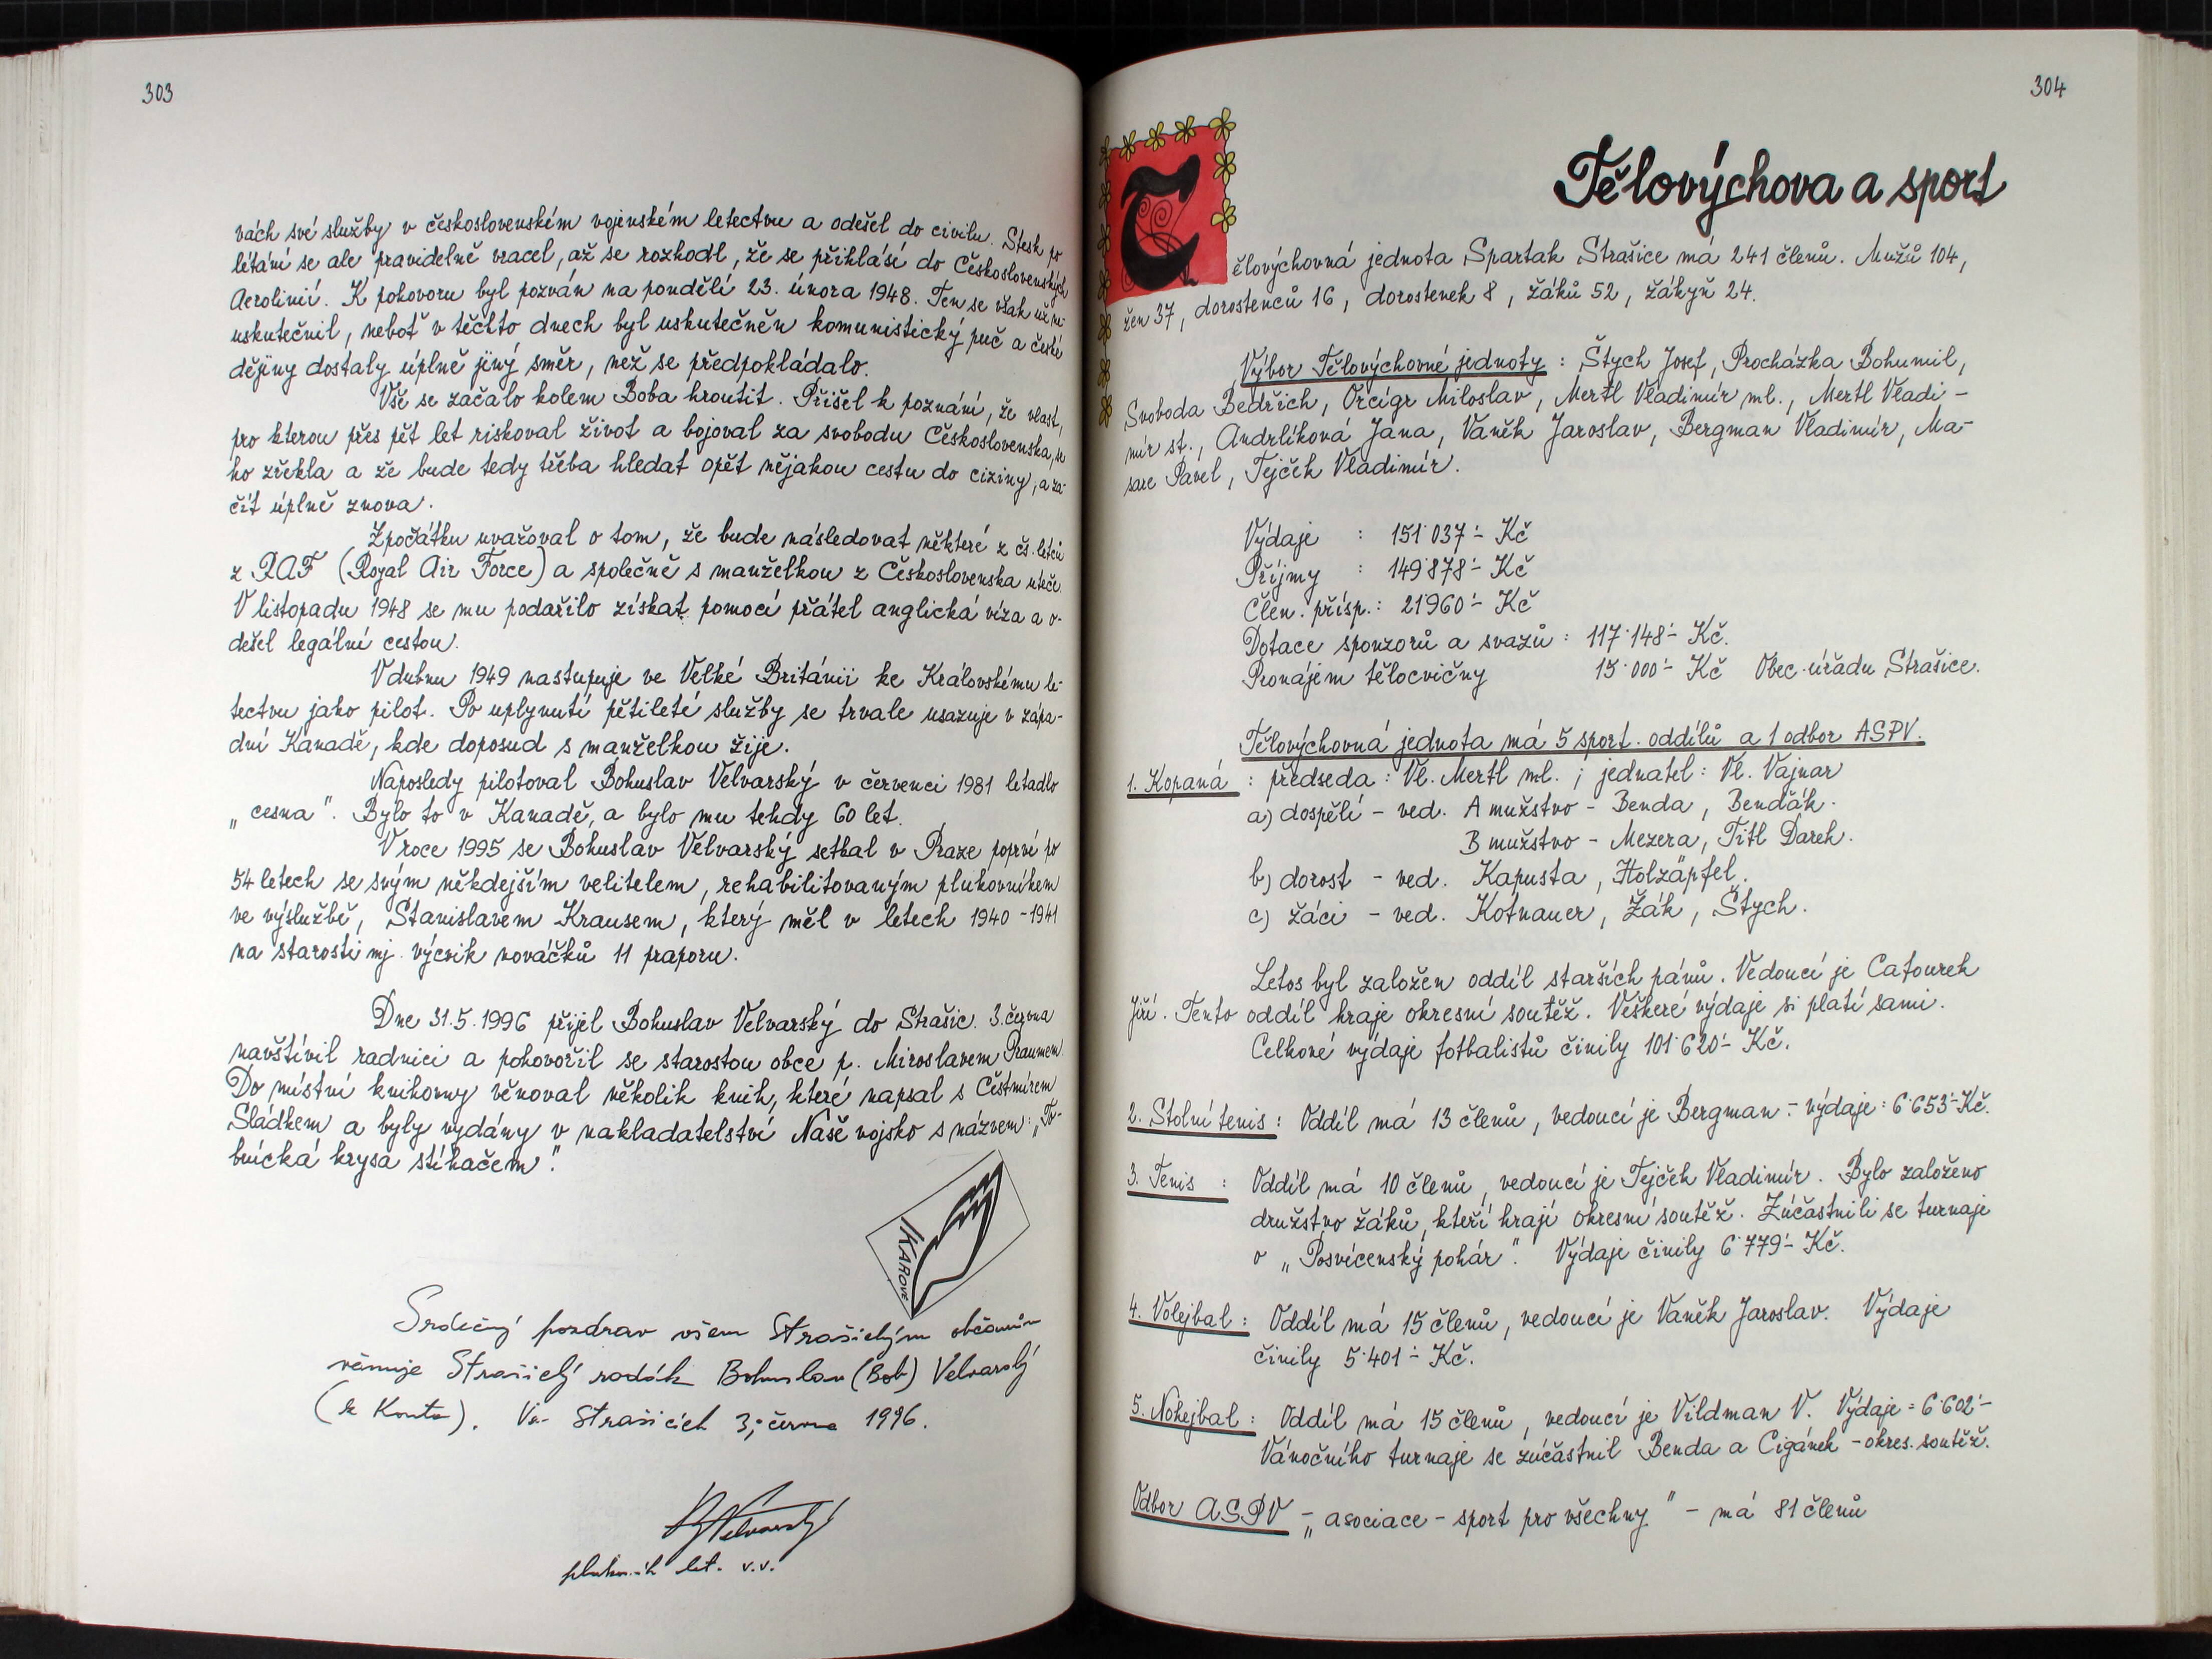 303
vách své služby v československém vojenském letectvu a odešel do civilu. Stesk po
létání se ale pravidelně vracel, až se rozhodl, že se přihlásí do Československých
Aerolinií. K pohovoru byl pozván na pondělí 23. února 1948. Ten se však už ne-
uskutečnil, neboť v těchto dnech byl uskutečněn komunistický puč a české
dějiny dostaly úplně jiný směr, než se předpokládalo.
Vše se začalo kolem Boba hroutit. Přišel k poznání, že vlast,
pro kterou přes pět let riskoval život a bojoval za svobodu Československa, se
ho zřekla a že bude tedy třeba hledat opět nějakou cestu do ciziny, a za-
čít úplně znova.
Zpočátku uvažoval o tom, že bude následovat některé z čs. letců
z RAF (Royal Air Force) a společně s manželkou z Československa uteče.
V listopadu 1948 se mu podařilo získat pomocí přátel anglická víza a o-
dešel legální cestou.
V dubnu 1949 nastupuje ve Velké Británii ke Královskému le-
tectvu jako pilot. Po uplynutí pětileté služby se trvale usazuje v zápa-
dní Kanadě, kde doposud s manželkou žije.
Naposledy pilotoval Bohuslav Velvarský v červenci 1981 letadlo
„cesna". Bylo to v Kanadě, a bylo mu tehdy 60 let.
V roce 1995 se Bohuslav Velvarský setkal v Praze poprvé po
54 letech se svým někdejším velitelem, rehabilitovaným plukovníkem
ve výslužbě, Stanislavem Krausem, který měl v letech 1940 - 1941
na starosti mj. výcvik nováčků 11 praporu.
Dne 31.5.1996 přijel Bohuslav Velvarský do Strašic. 3. června
navštívil radnici a pohovořil se starostou obce p. Miroslavem Praumem.
Do místní knihovny věnoval několik knih, které napsal s Čestmírem
Sládkem a byly vydány v nakladatelství Naše vojsko s názvem: „To-
brúcká krysa stíhačem".
IKAROVÉ
Srdečný pozdrav všem Strašickým občanům
věnuje Strašický rodák Bohuslav (Bob) Velvarský
(z Konta). Ve Strašicích 3. června 1996.
BVelvarský
plukovník let. v.v.
304
Tělovýchova a sport
Tělovýchovná jednota Spartak Strašice má 241 členů. Mužů 104,
žen 37, dorostenců 16, dorostenek 8, žáků 52, žákyň 24.
Výbor Tělovýchovné jednoty : Štych Josef, Procházka Bohumil,
Svoboda Bedřich, Orcígr Miloslav, Mertl Vladimír ml., Mertl Vladi-
mír st., Andrlíková Jana, Vaněk Jaroslav, Bergman Vladimír, Ma-
sare Pavel, Tejček Vladimír.
Výdaje : 151 037'- Kč
Příjmy : 149 878'- Kč
Člen. přísp.: 21 960'- Kč
Dotace sponzorů a svazů : 117 148'- Kč.
Pronájem tělocvičny 15 000'- Kč Obec. úřadu Strašice.
Tělovýchovná jednota má 5 sport. oddílů a 1 odbor ASPV.
1. Kopaná : předseda : Vl. Mertl ml. ; jednatel : Vl. Vajnar
a) dospělí - ved. A mužstvo - Benda, Bendák.
B mužstvo - Mezera, Titl Darek.
b) dorost - ved. Kapusta, Holzäpfel.
c) žáci - ved. Kotnauer, Žák, Štych.
Letos byl založen oddíl starších pánů. Vedoucí je Cafourek
Jiří. Tento oddíl hraje okresní soutěž. Veškeré výdaje si platí sami.
Celkové výdaje fotbalistů činily 101 620'- Kč.
2. Stolní tenis : Oddíl má 13 členů, vedoucí je Bergman - výdaje : 6 653'- Kč.
3. Tenis : Oddíl má 10 členů, vedoucí je Tejček Vladimír. Bylo založeno
družstvo žáků, kteří hrají okresní soutěž. Zúčastnili se turnaje
o „Posvícenský pohár". Výdaje činily 6 779'- Kč.
4. Volejbal : Oddíl má 15 členů, vedoucí je Vaněk Jaroslav. Výdaje
činily 5 401'- Kč.
5. Nohejbal : Oddíl má 15 členů, vedoucí je Vildman V. Výdaje = 6 602'-
Vánočního turnaje se zúčastnil Benda a Cigánek - okres. soutěž.
Odbor ASPV - „asociace - sport pro všechny" - má 81 členů